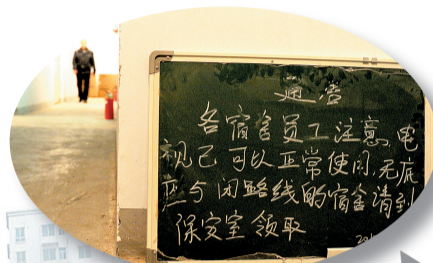 通告
各宿舍员工注意,电
视已可以正常使用,无底
座与闭路线的宿舍请到
保安室领取